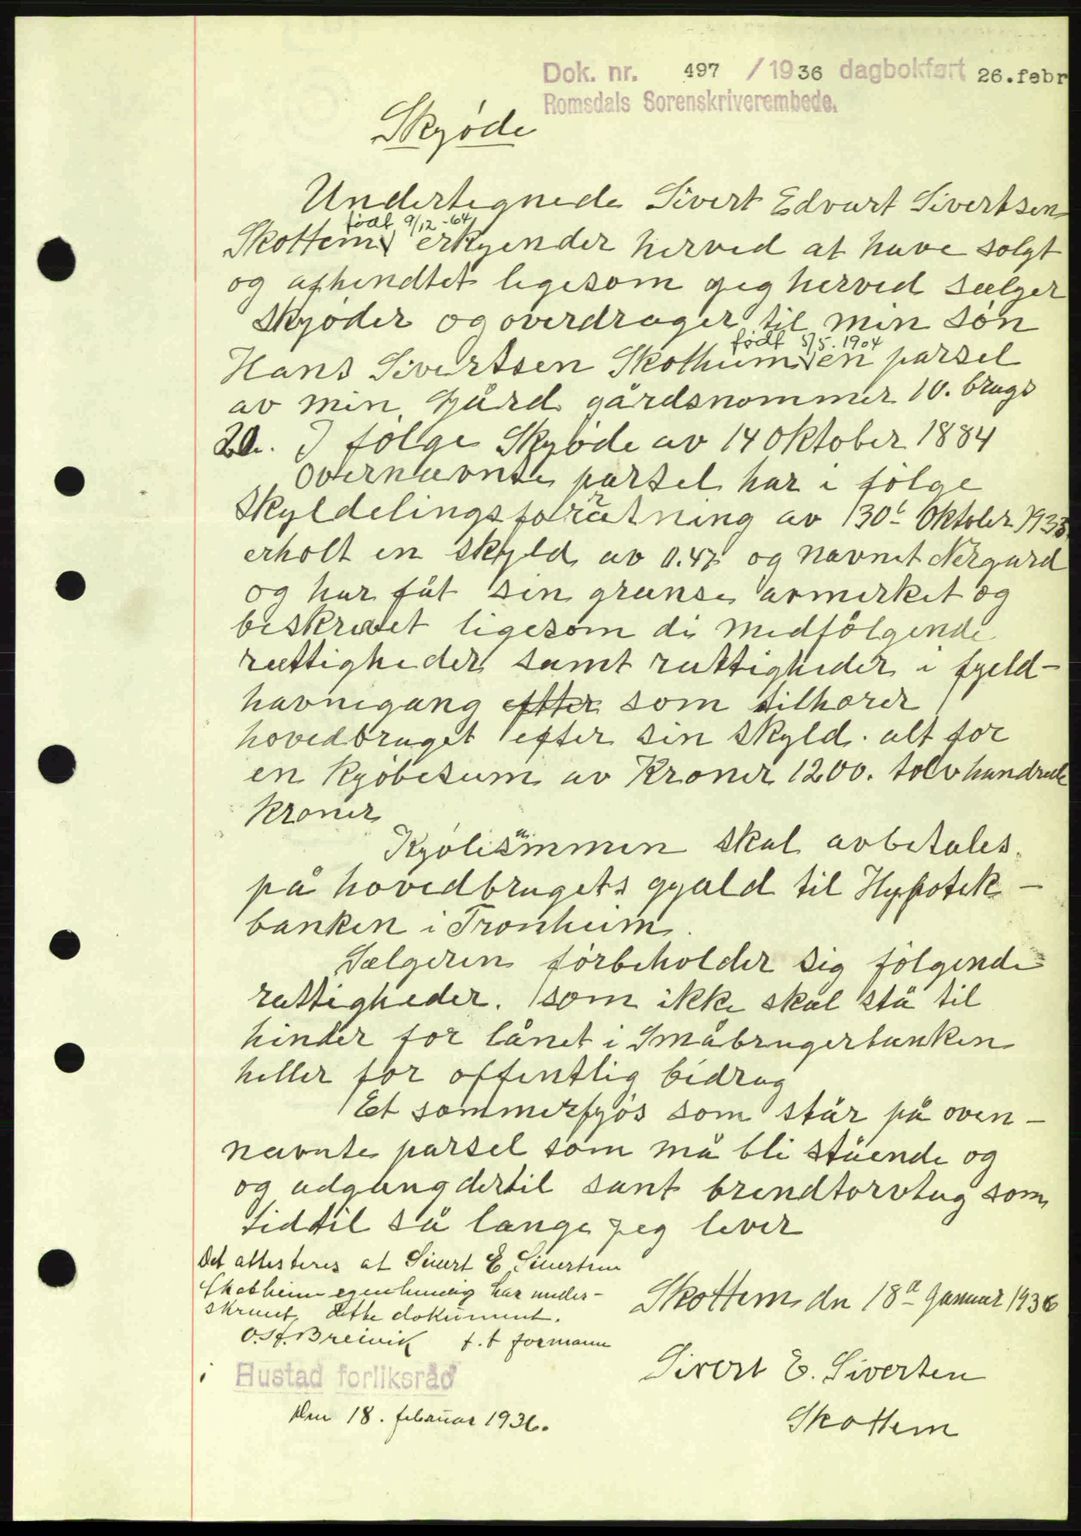 Dok. nr. 497 /1936 dagbokført 26.febr
Romsdals Sorenskriverembede.
Skjøde
Undertegnede Sivert Edvart Sivertsen
født 9/12-64
Skottem erkjender herved at have solgt
og afhendtet ligesom jeg herved sælger
skjøder og overdrager til min søn
født 5/5.1904
Hans Sivertsen Skotheim en parsel
av min Gård gårdsnommer 10. brugs
20. I følge Skjøde av 14 oktober 1884
Overnævnte parsel har i følge
skyldelingsforrätning av 30te Oktober 1933
erholt en skyld av 0.47 og navnet Nergard
og har fåt sin grænse avmerket og
beskrevet ligesom de medfølgende
rættigheder samt rættigheder i fjeld-
havnegang efter som tilhører
hovedbruget efter sin skyld. alt for
en kjøbesum av Kroner 1200. tolvhundrede
kroner
Kjøbesummen skal avbetales
på hovedbrugets gjæld til Hypotek-
banken i Tronheim.
Sælgeren förbeholder sig følgende
rættigheder. som ikke skal stå til
hinder for lånet i Småbrugerbanken
heller for offentlig bidrag
Et sommerfjøs som står på oven-
nævnte parsel som må bli stående og
og adgang dertil samt brendtorvtag som
tidtil så længe jeg lever
Det attesteres at Sivert E Sivertsen
Skotheim egenhendig har under-
skrevet dette dokument.
O. St. Breivik f.t formann
i Hustad forliksråd
Den 18. februar 1936.
Skottem dn 18de Januar 1936
Sivert E. Siversen
Skottem